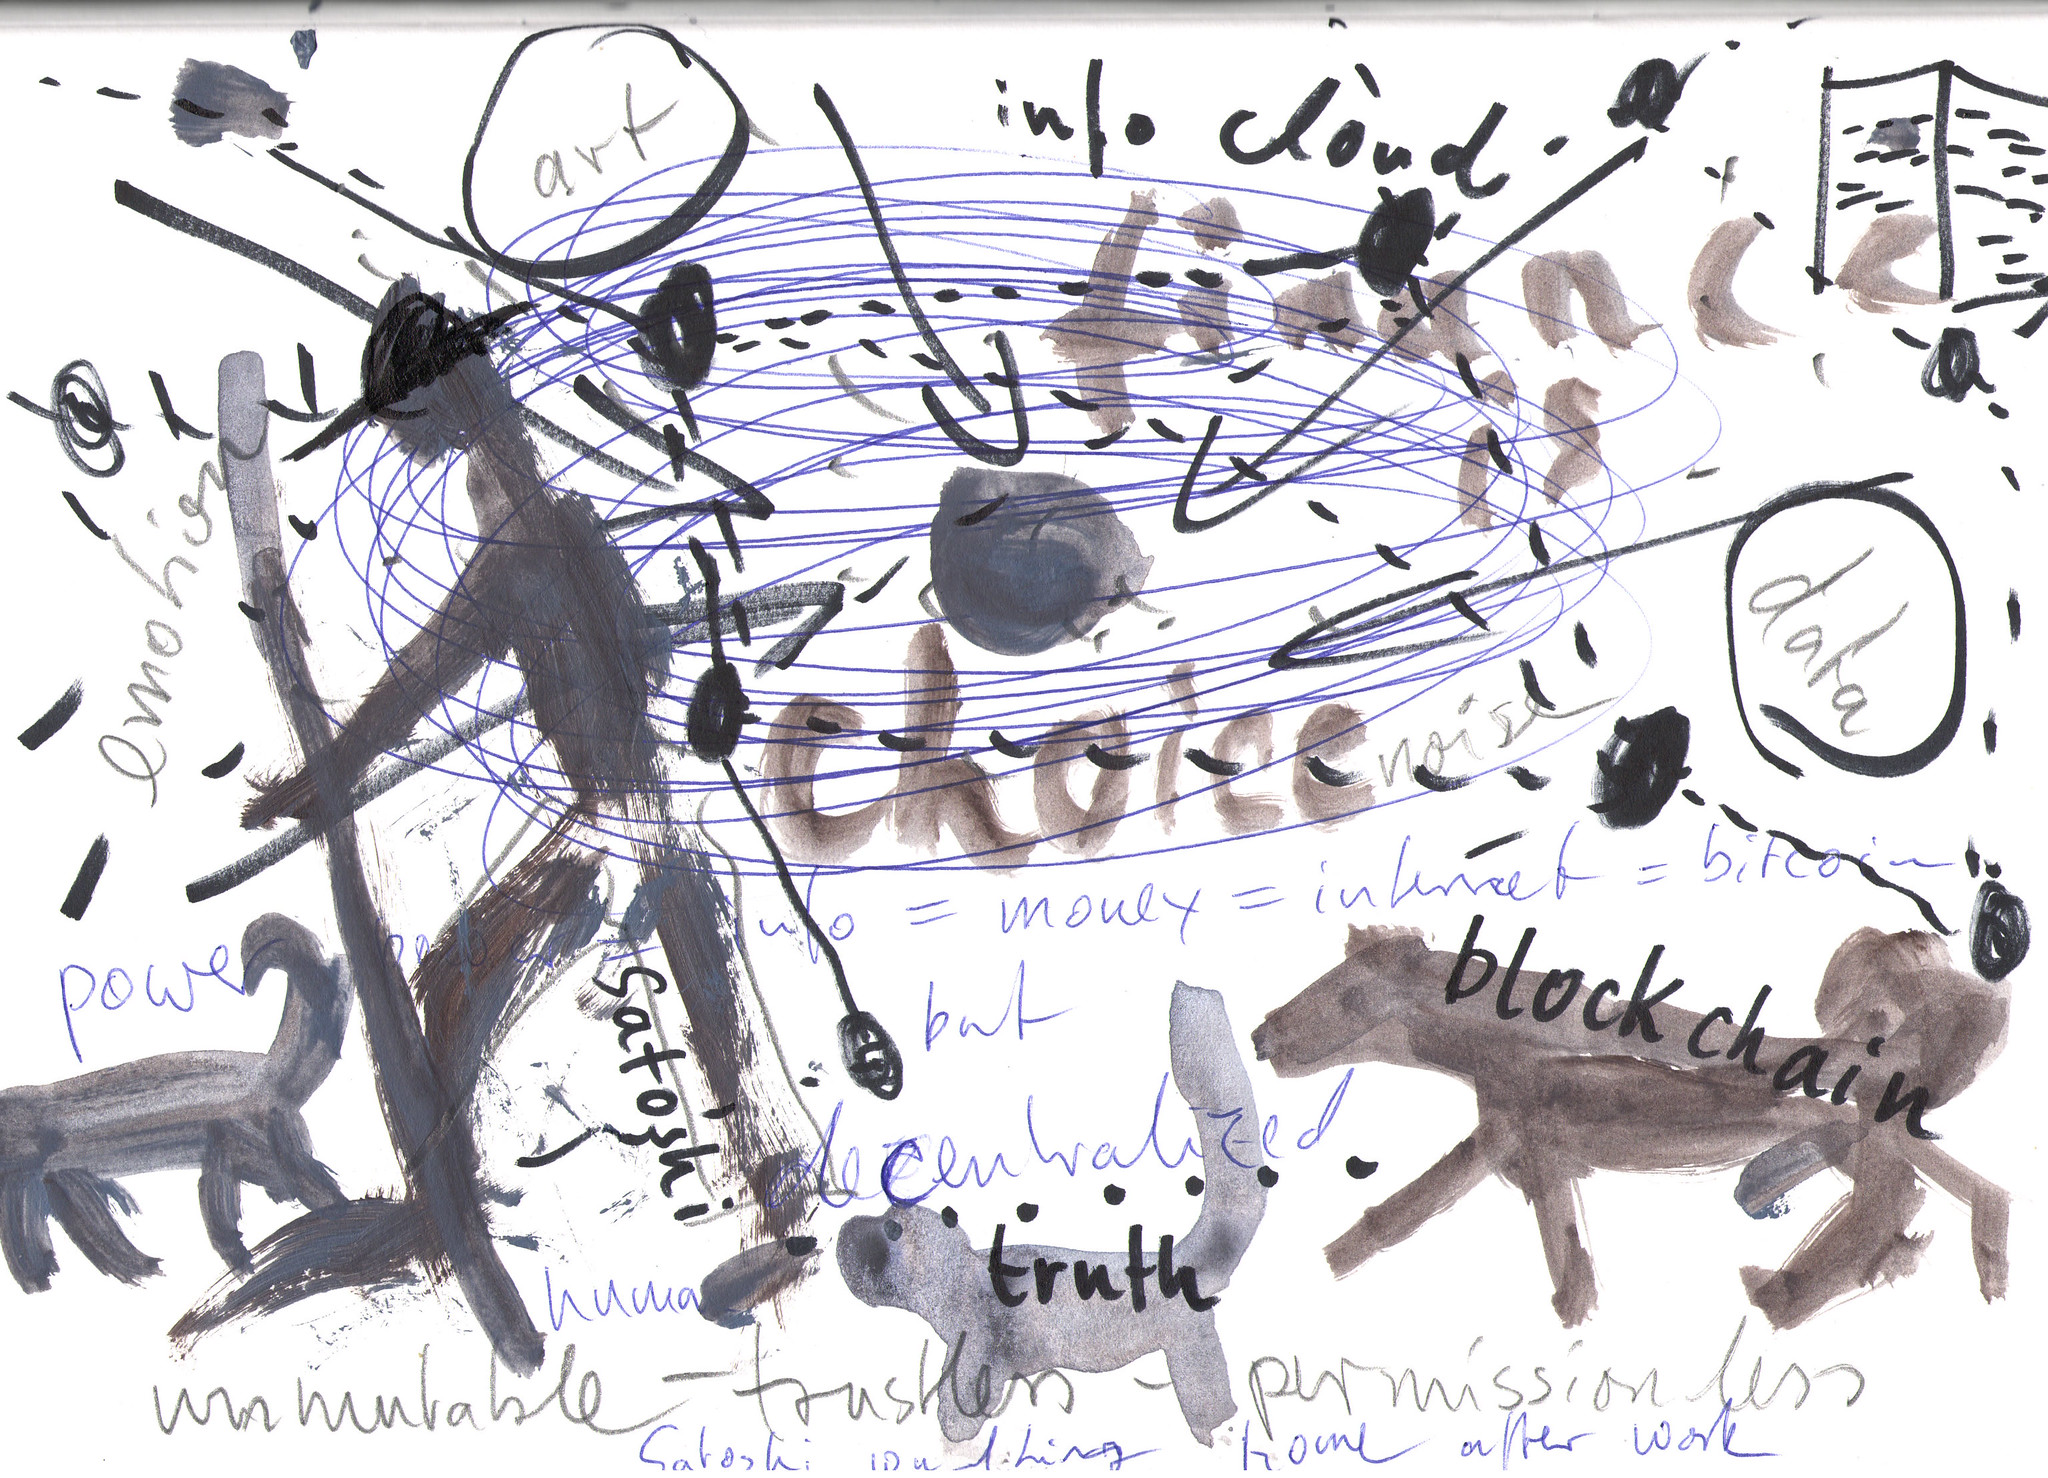 art
info cloud
financ
is
emotion
data
choice
noise
power = info = money = internet = bitcoin
but
blockchain
satoshi
decentralized
truth
huma
unmutable - trustless - permissionless
Satoshi walking home after work